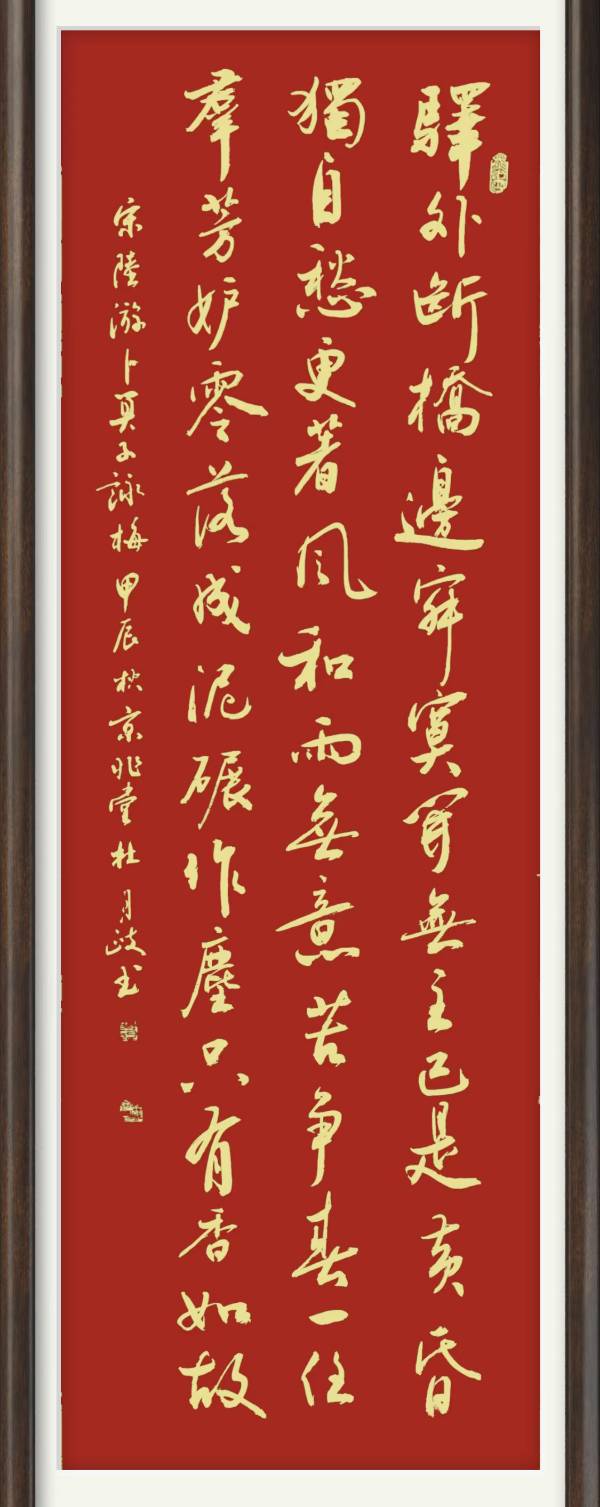 驛外斷橋邊寂寞開無主已是黃昏
獨自愁更著風和雨無意苦爭春一住
羣芳妒零落成泥碾作塵只有香如故
宋陸游卜算子詠梅甲辰秋京兆堂杜月歧书